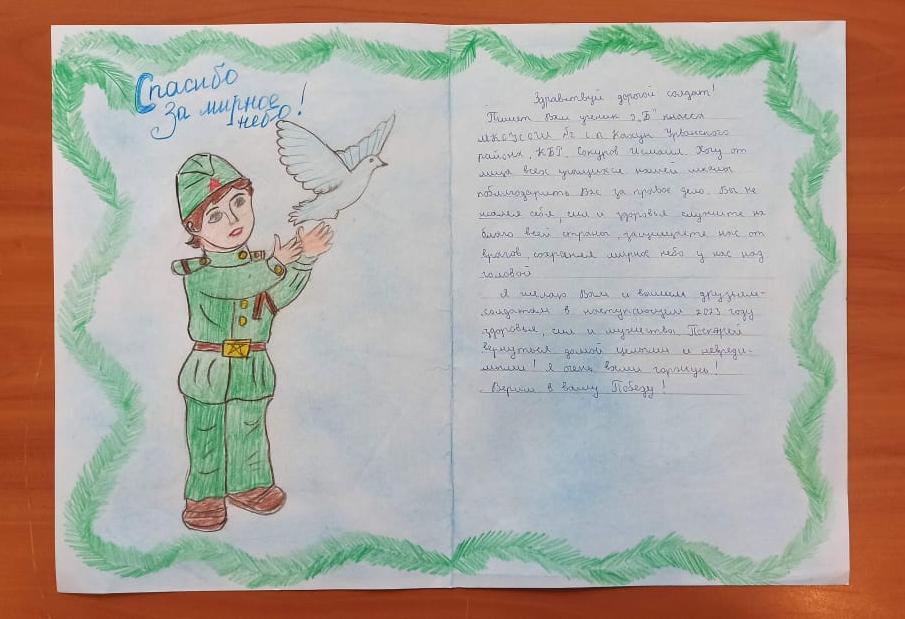 Спасибо
За мирное
небо!
Здравствуй дорогой солдат!
Пишет Вам ученик 3 „Б" класса
МКОУСОШ №2 с.п. Кахун Урванского
района, КБР, Сокуров Исмаил. Хочу от
лица всех учащихся нашей школы
поблагодарить Вас за правое дело. Вы не
жалея себя, сил и здоровья служите на
благо всей страны, защищаете нас от
врагов, сохраняя мирное небо у нас над
головой
Я желаю Вам и вашим друзьям-
солдатам в наступающем 2023 году
здоровья, сил и мужества. Поскорей
вернуться домой целыми и невреди-
мыми! Я очень вами горжусь!
Верим в вашу Победу!